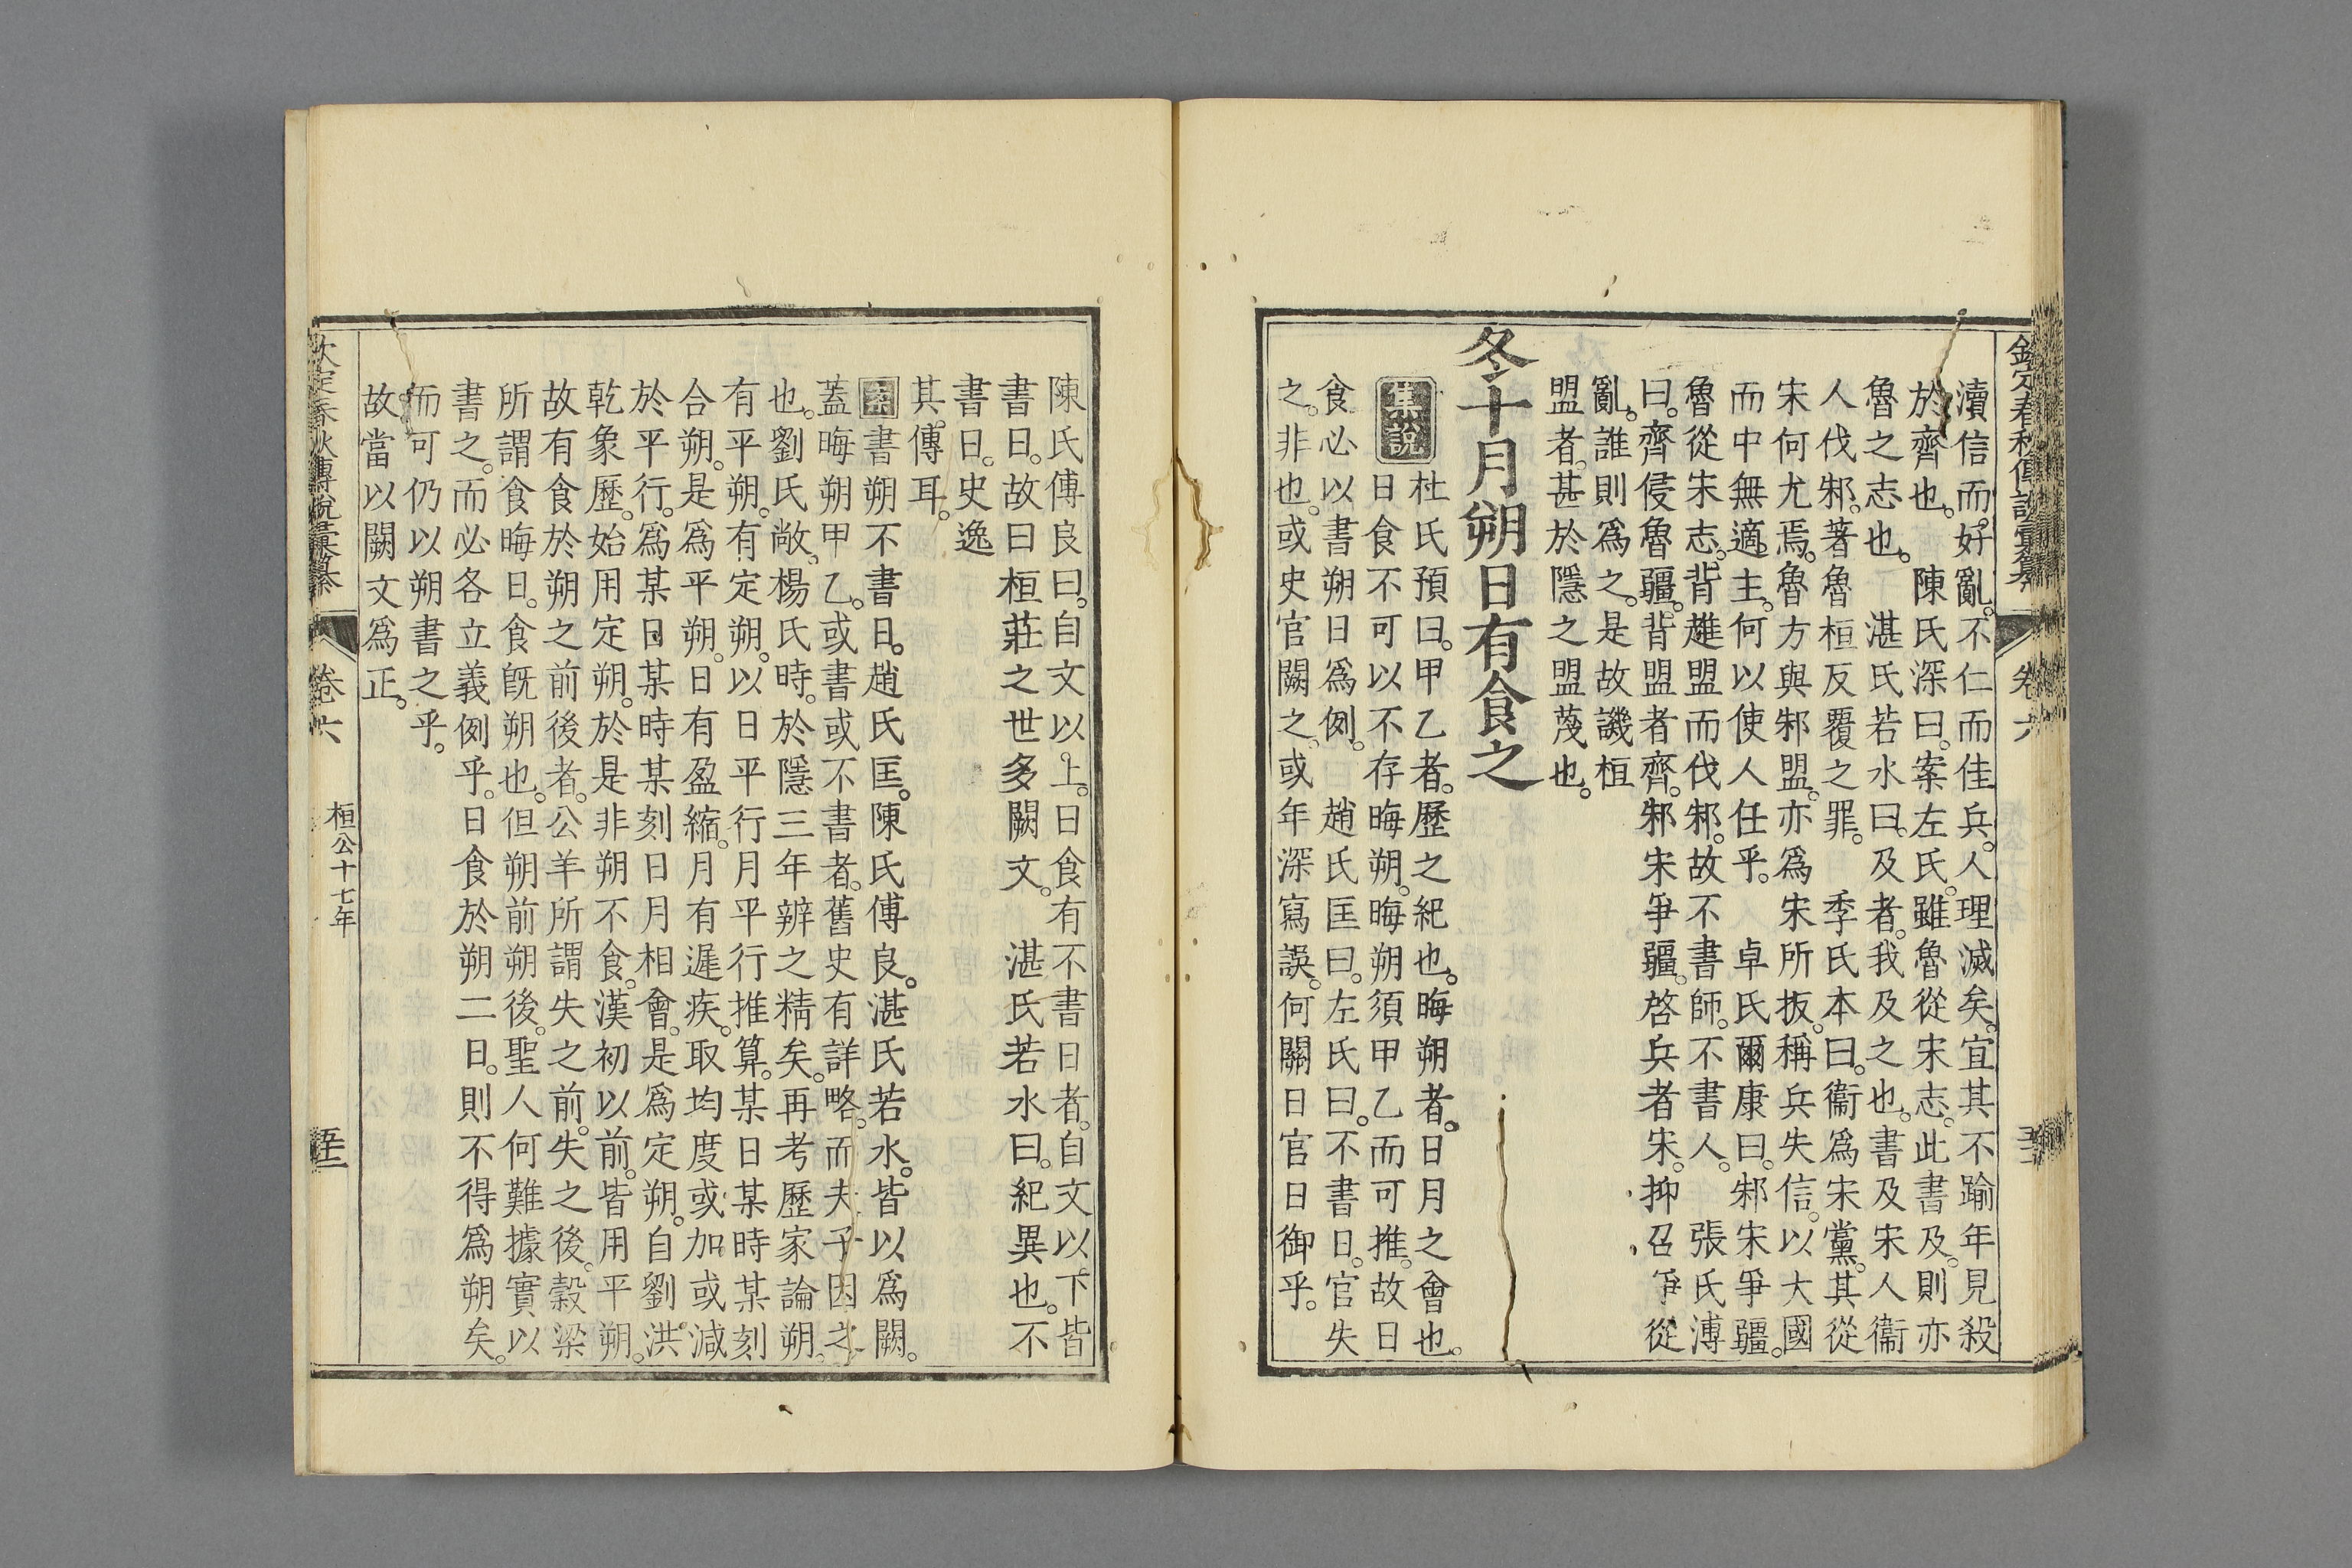 欽定春秋傳說彙纂 卷六
瀆信而好亂。不仁而佳兵。人理滅矣。宜其不踰年見殺
於齊也。 陳氏深曰。案左氏。雖魯從宋志。此書及。則亦
魯之志也。 湛氏若水曰。及者。我及之也。書及宋人衞
人伐邾。著魯桓反覆之罪。 季氏本曰。衞爲宋黨。其從
宋何尤焉。魯方與邾盟。亦爲宋所扳。稱兵失信。以大國
而中無適主。何以使人任乎。 卓氏爾康曰。邾宋爭疆。
魯從宋志。背趡盟而伐邾。故不書師。不書人。 張氏溥
曰。齊侵魯疆。背盟者齊。邾宋爭疆。啓兵者宋。抑召爭從
亂。誰則爲之。是故譏桓
盟者。甚於隱之盟蔑也。
冬十月朔日有食之
集說
杜氏預曰。甲乙者。歷之紀也。晦朔者。日月之會也。
日食不可以不存晦朔。晦朔須甲乙而可推。故日
食必以書朔日爲例。 趙氏匡曰。左氏曰。不書日。官失
之。非也。或史官闕之。或年深寫誤。何關日官日御乎。
陳氏傅良曰。自文以上。日食有不書日者。自文以下皆
書日。故曰桓莊之世多闕文。 湛氏若水曰。紀異也。不
書日。史逸
其傳耳。
案書朔不書日。趙氏匡。陳氏傅良。湛氏若水。皆以爲闕。
蓋晦朔甲乙。或書或不書者。舊史有詳略。而夫子因之
也。劉氏敞。楊氏時。於隱三年辨之精矣。再考歷家論朔。
有平朔。有定朔。以日平行月平行推算。某日某時某刻
合朔。是爲平朔。日有盈縮。月有遲疾。取均度或加或減
於平行。爲某日某時某刻日月相會。是爲定朔。自劉洪
乾象歷。始用定朔。於是非朔不食。漢初以前。皆用平朔。
故有食於朔之前後者。公羊所謂失之前。失之後。穀梁
所謂食晦日。食旣朔也。但朔前朔後。聖人何難據實以
書之。而必各立義例乎。日食於朔二日。則不得爲朔矣。
而可仍以朔書之乎。
故當以闕文爲正。
欽定春秋傳說彙纂 卷六 桓公十七年